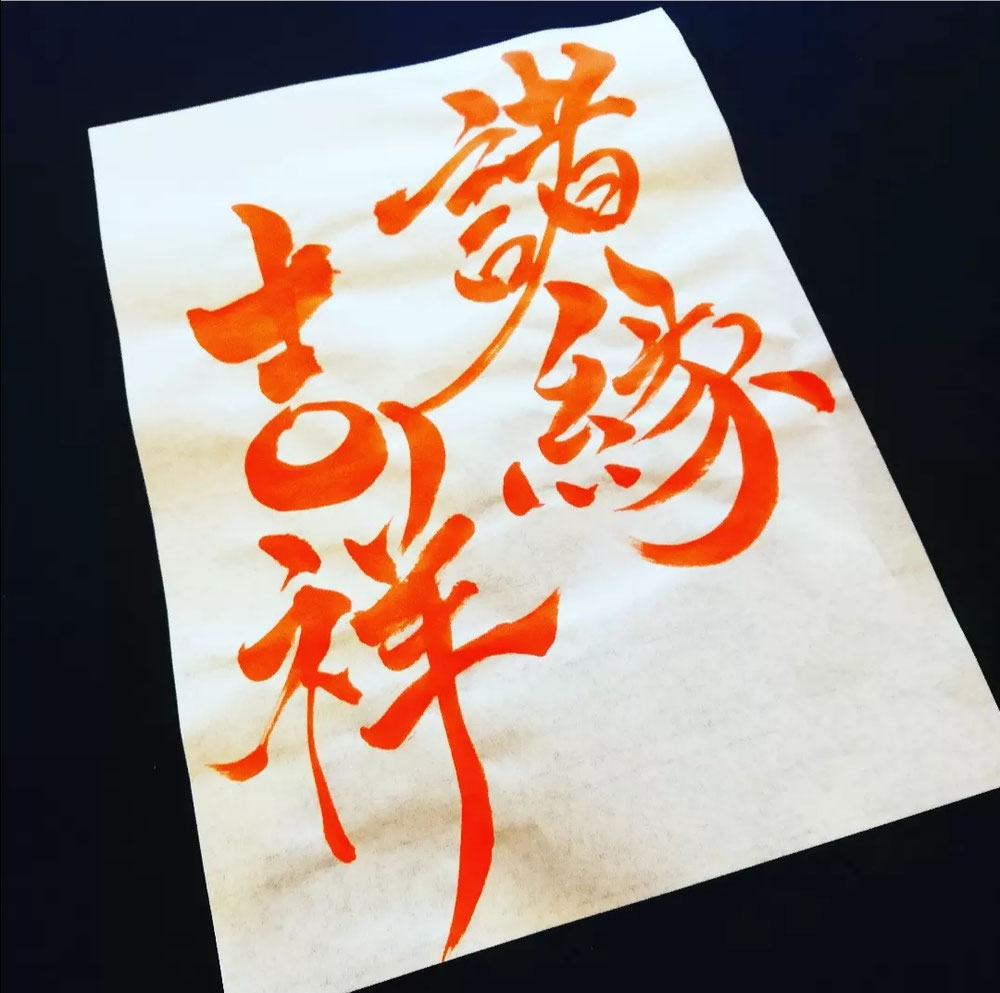 諸縁
吉祥